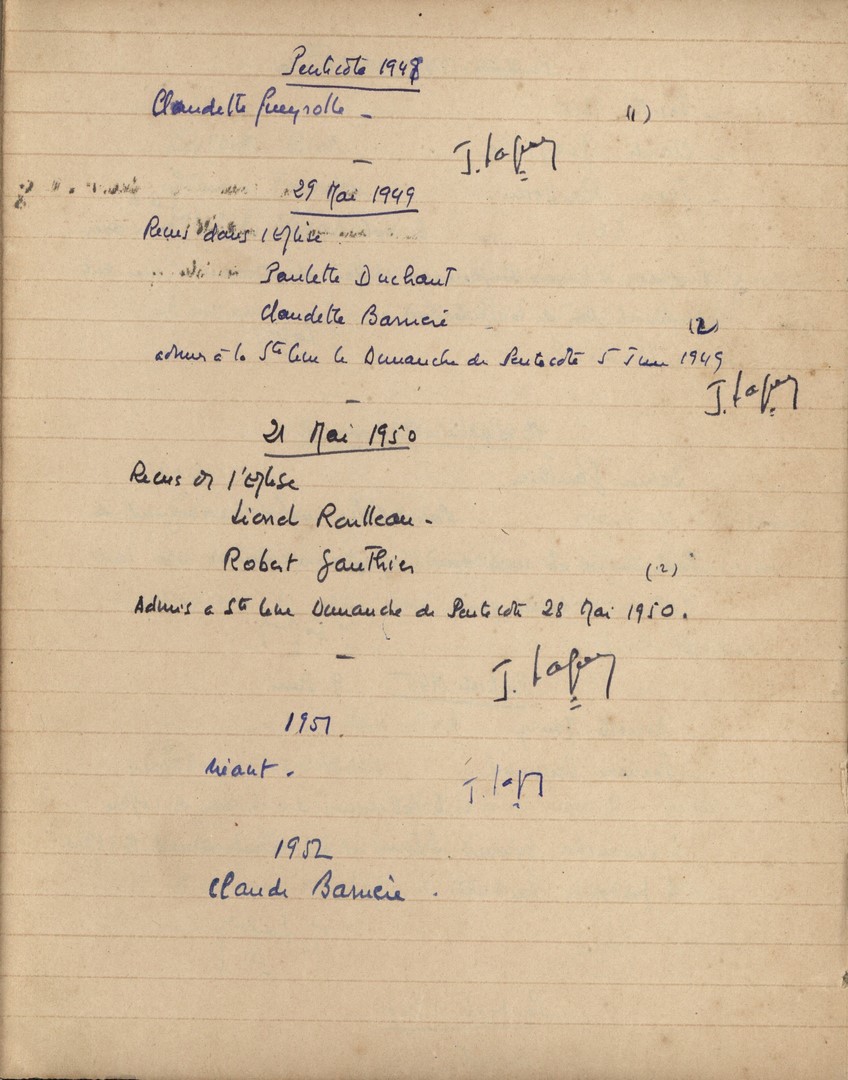 Pentecôte 1948
Claudette Gueyrolle - (1)
29 Mai 1949
Recus dans l'Eglise
Paulette Duchaut
Claudette Barriere (2)
admis à la Ste Cene le Dimanche de Pentecôte 5 Juin 1949
21 Mai 1950
Recus ds l'Eglise
Lionel Roulleau -
Robert Gauthier (2)
Admis a Ste Cene Dimanche de Pentecôte 28 Mai 1950.
1951.
Néant.
1952
Claude Barriere.